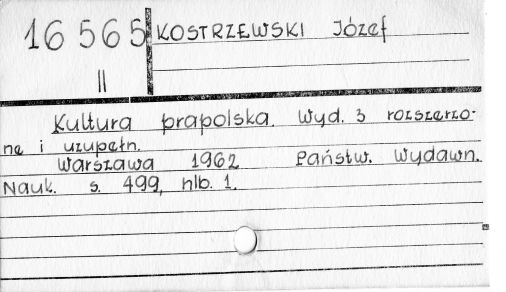 16 565 KOSTRZEWSKI Józef
II
Kultura prapolska. Wyd. 3 rozszerzo-
ne i uzupełn.
Warszawa 1962 Państw. Wydawn.
Nauk. s. 499, nlb. 1.